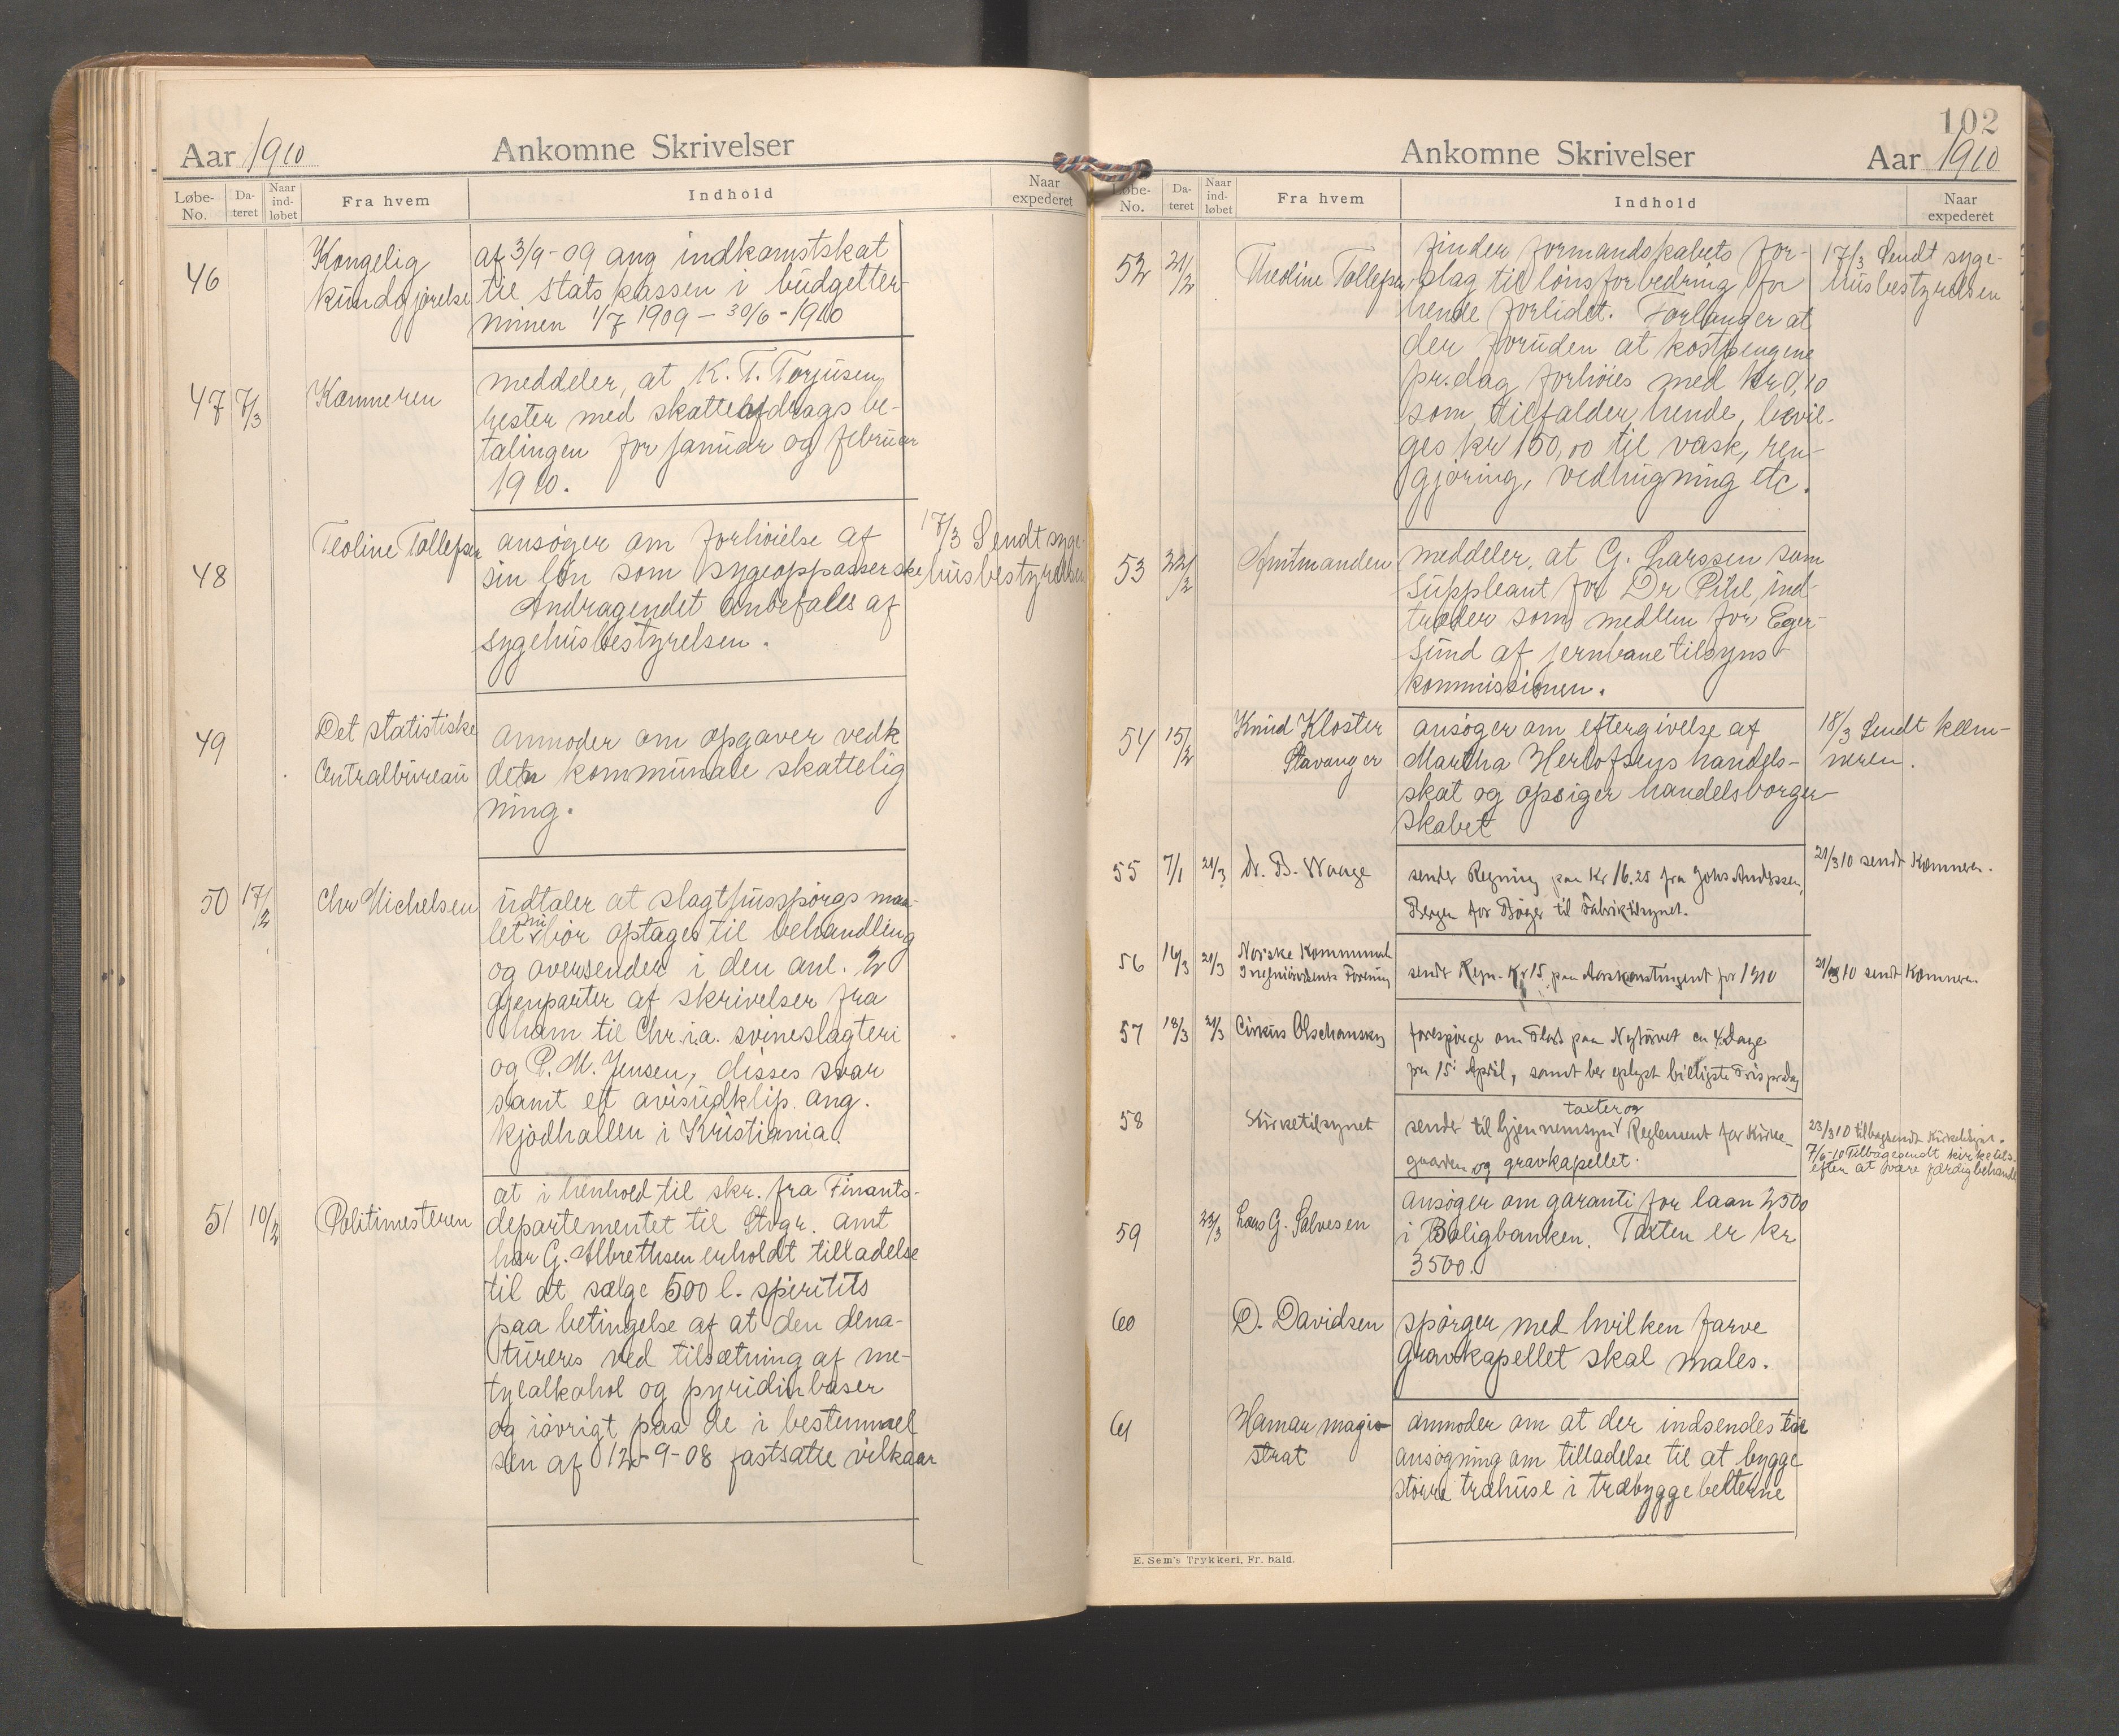 Aar 1910
Ankomne Skrivelser
Løbe-No.
Da-teret
Naar ind-løbet
Fra hvem
Indhold
Naar expederet
46
Kongelig
kundgjørelse
af 3/9-09 ang indkomstskat
til stats kassen i budgetter-
minen 1/7 1909 - 30/6-1910
47 7/3
Kæmneren
meddeler, at K. T. Torjusen
rester med skatteafdrags be-
talingen for januar og februar
1910.
48
Teoline Tollefsen
ansøger om forhøielse af
sin løn som sygeoppasserske
Andragendet anbefales af
sygehusbestyrelsen.
17/3 Sendt syge-
husbestyrelsen
49
Det statistiske
Centralbureau
anmoder om opgaver vedk
den kommunale skattelig
ning.
50 17/2
Chr Michelsen
udtaler at slagthusspørgsmaa-
let nu bør optages til behandling
og oversender i den anl. 2
gjenparter af skrivelser fra
ham til Chr.i.a. svineslagteri
og P. M. Jensen, disses svar
samt et avisudklip. ang.
kjødhallen i Kristiania.
51 10/2
Politimesteren
at i henhold til skr. fra Finants-
departementet til Stvgr. amt
har G. Albrethsen erholdt tilladelse
til at sælge 500 l. spiritus
paa betingelse af at den dena-
tureres ved tilsætning af me-
tylalkohol og pyridinbaser
og iøvrigt paa de i bestemmel
sen af 12-9-08 fastsatte vilkaar
102
Ankomne Skrivelser
Aar 1910
Løbe-No.
Da-teret
Naar ind-løbet
Fra hvem
Indhold
Naar expederet
52 21/2
Theoline Tollefsen
finder formandskabets for-
slag til lønsforbedring for
hende forlidet. Forlanger at
der foruden at kostpengene
pr. dag forhøies med kr 0,10
som tilfalder hende, bevil-
ges kr 150,00 til vask, ren-
gjøring, vedhugning etc.
17/3 Sendt syge-
husbestyrelsen
53 22/2
Amtmanden
meddeler, at G. Larssen som
suppleant for Dr Pihl, ind-
træder som medlem for Eger-
sund af jernbanetilsyns-
kommissionen.
54 15/2
Knud Kloster
Stavanger
ansøger om eftergivelse af
Martha Herlofsens handels-
skat og opsiger handelsborger-
skabet
18/3 Sendt kæm-
neren.
55 7/1 21/3
Dr. B. Waage
sender Regning paa Kr 16.25 fra Johs Anderssen,
Bergen for Bøger til Fabriktilsynet.
21/3 10 sendt Kæmneren.
56 16/3 21/3
Norske Kommunal
Ingeniørers Forening
sendt Regn. Kr 15 paa Aarskontingent for 1910
21/3 10 sendt Kæmneren.
57 18/3 21/3
Cirkus Olschansky
forespørge om Plads paa Nytorvet ca 4 Dage
fra 15' April, samt ber oplyst billigste Pris pr Dag
58
Kirketilsynet
taxter og
sender til Gjennemsyn Reglement for Kirke-
gaarden og gravkapellet.
23/3 10 tilbagesendt Kirketilsynet.
7/6-10 Tilbagesendt kirketils.
efter at være færdigbehandl
59 23/3
Lars G. Salvesen
ansøger om garanti for laan 2300
i Boligbanken. Taxten er kr
3500.
60
D. Davidsen
spørger med hvilken farve
Gravkapellet skal males.
61
Hamar magi-
strat
anmoder om at der indsendes
ansøgning om tilladelse til at bygge
større træhuse i træbyggebelterne
E. Sem's Trykkeri, Fr. hald.